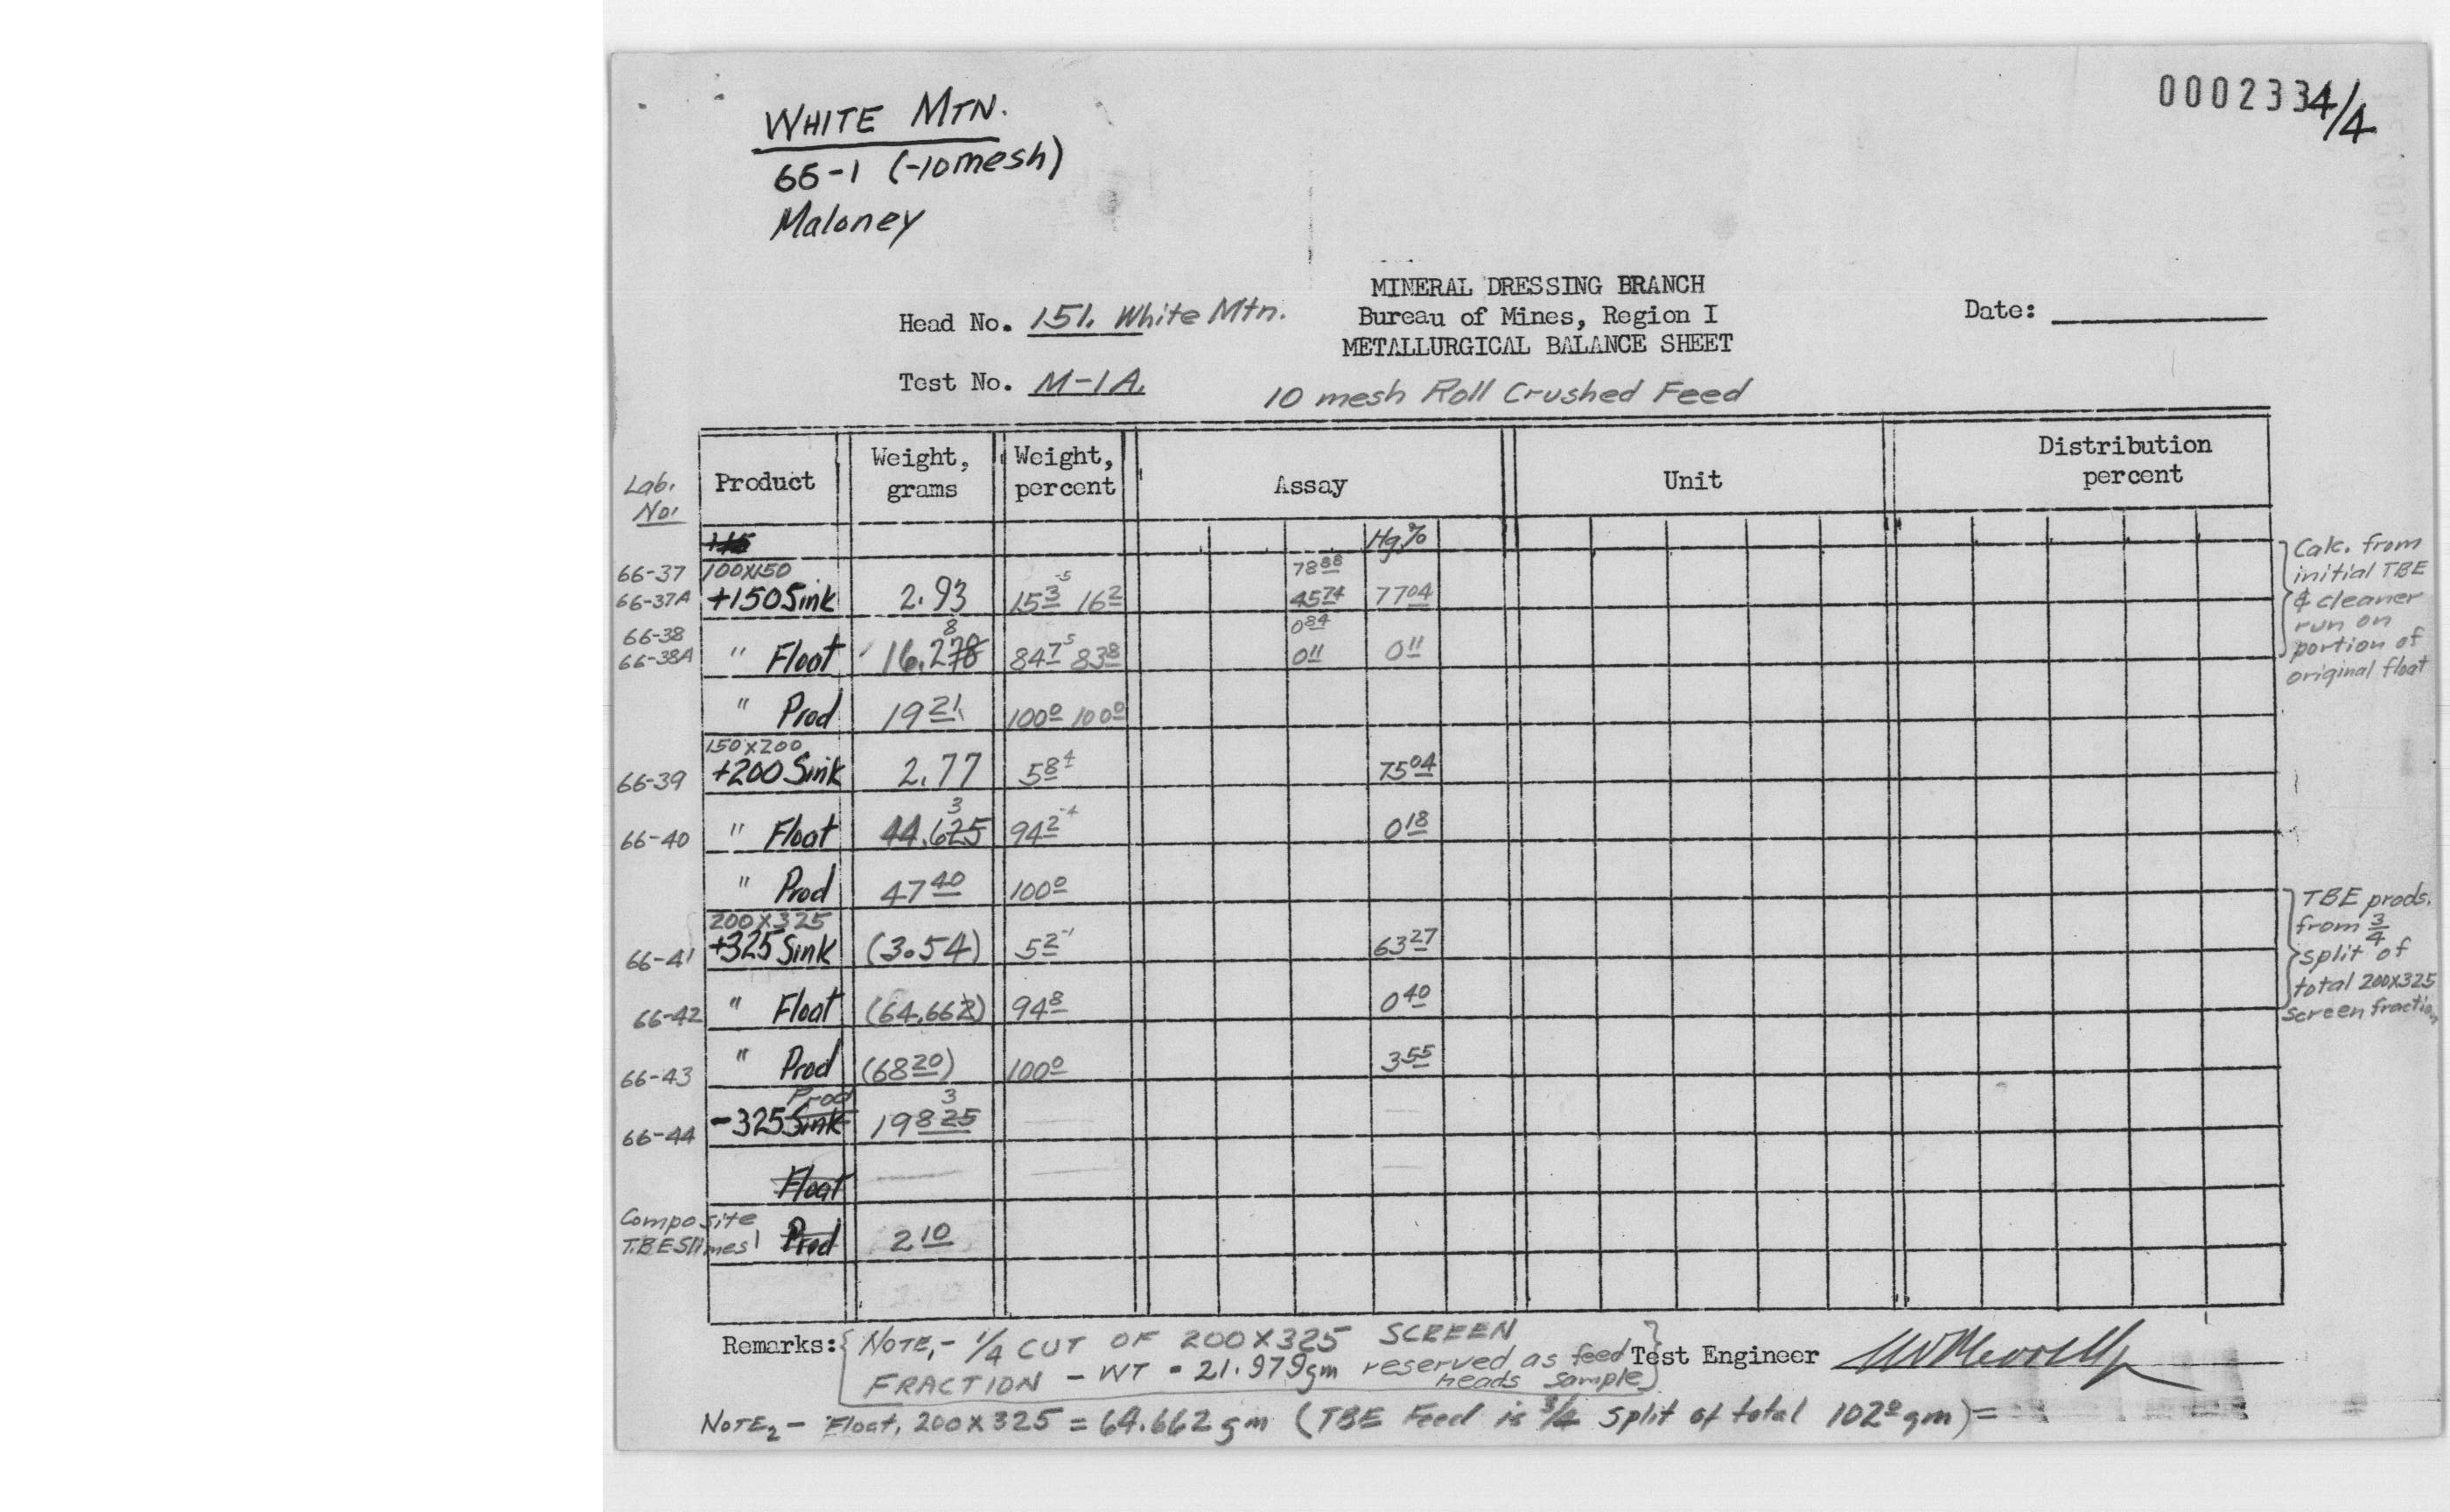 0002334/4
WHITE MTN.
66-1 (-10mesh)
Maloney
MINERAL DRESSING BRANCH
Head No. 151. White Mtn. Bureau of Mines, Region I Date:
METALLURGICAL BALANCE SHEET
Test No. M-1A. 10 mesh Roll Crushed Feed
Lab. No. Product Weight, grams Weight, percent Assay Unit Distribution percent
Hg,%
66-37 100x150 78 88
66-37A +150 Sink 2.93 15 3 -5 16 2 45 74 77 04
66-38 8 0 84
66-38A " Float 16.278 84 7 5 83 8 0 11 0 11
" Prod 19 21 100 0 100 0
Calc. from
initial TBE
& cleaner
run on
portion of
original float
150x200
66-39 +200 Sink 2.77 5 8 4 75 04
3
66-40 " Float 44.625 94 2 -4 0 18
" Prod 47 40 100 0
200x325
66-41 +325 Sink (3.54) 5 2 -1 63 27
66-42 " Float (64.662) 94 8 0 40
66-43 " Prod (68 20) 100 0 3 55
TBE prods.
from 3/4
split of
total 200x325
screen fraction
Prod 3
66-44 -325 Sink 198 25
Float
Composite
T.B.E Slimes Prod 2 10
Remarks: NOTE,- 1/4 CUT OF 200X325 SCREEN
FRACTION - WT = 21.979gm reserved as feed Test Engineer
heads sample
NOTE2 - Float, 200X325 = 64.662 gm (TBE Feed is 3/4 split of total 102 0 gm) =